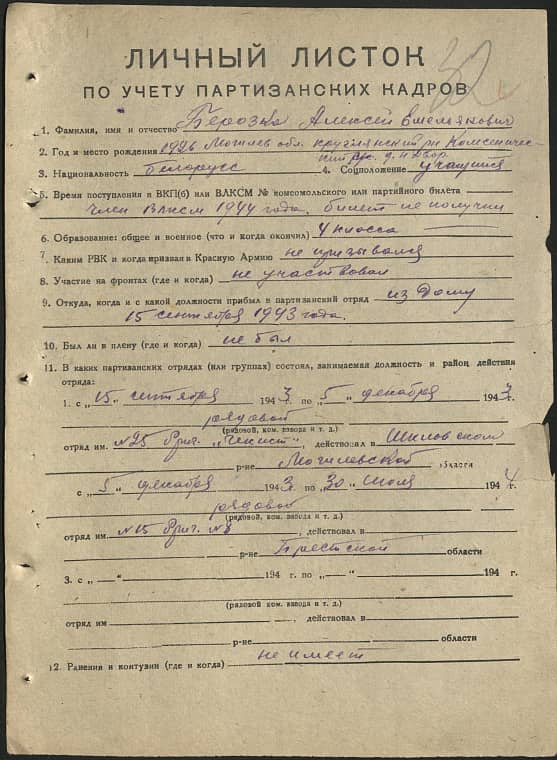 32
ЛИЧНЫЙ ЛИСТОК
ПО УЧЕТУ ПАРТИЗАНСКИХ КАДРОВ
1. Фамилия, имя и отчество Березка Алексей
2. Год и место рождения 1926 Могилев обл. круглянский рн
д. н Двор
3. Национальность белорусс 4. Соцположение учащийся
5. Время поступления в ВКП(б) или ВЛКСМ № комсомольского или партийного билета
член ВЛКСМ 1944 года, билет не получил
6. Образование: общее и военное (что и когда окончил) 4 класса
7. Каким РВК и когда призван в Красную Армию не призывался
8. Участие на фронтах (где и когда) не участвовал
9. Откуда, когда и с какой должности прибыл в партизанский отряд из дому
15 сентября 1943 года.
10. Был ли в плену (где и когда) не был
11. В каких партизанских отрядах (или группах) состоял, занимаемая должность и район действия
отряда:
1. с „15“ сентября 1943 г. по „5“ декабря 1943 г.
рядовой
(рядовой, ком. взвода и т. д.)
отряд им. №25 Бриг. „Чекист“, действовал в Шкловском
р-не Могилевской области
с „5“ декабря 1943 г. по „30“ июля 1944 г.
рядовой
(рядовой, ком. взвода и т. д.)
отряд им. №15 Бриг. №8, действовал в
р-не Брестской области
3. с „ “ 194 г. по „ “ 194 г.
(рядовой, ком. взвода и т. д.)
отряд им , действовал в
р-не области
12. Ранения и контузии (где и когда) не имеет